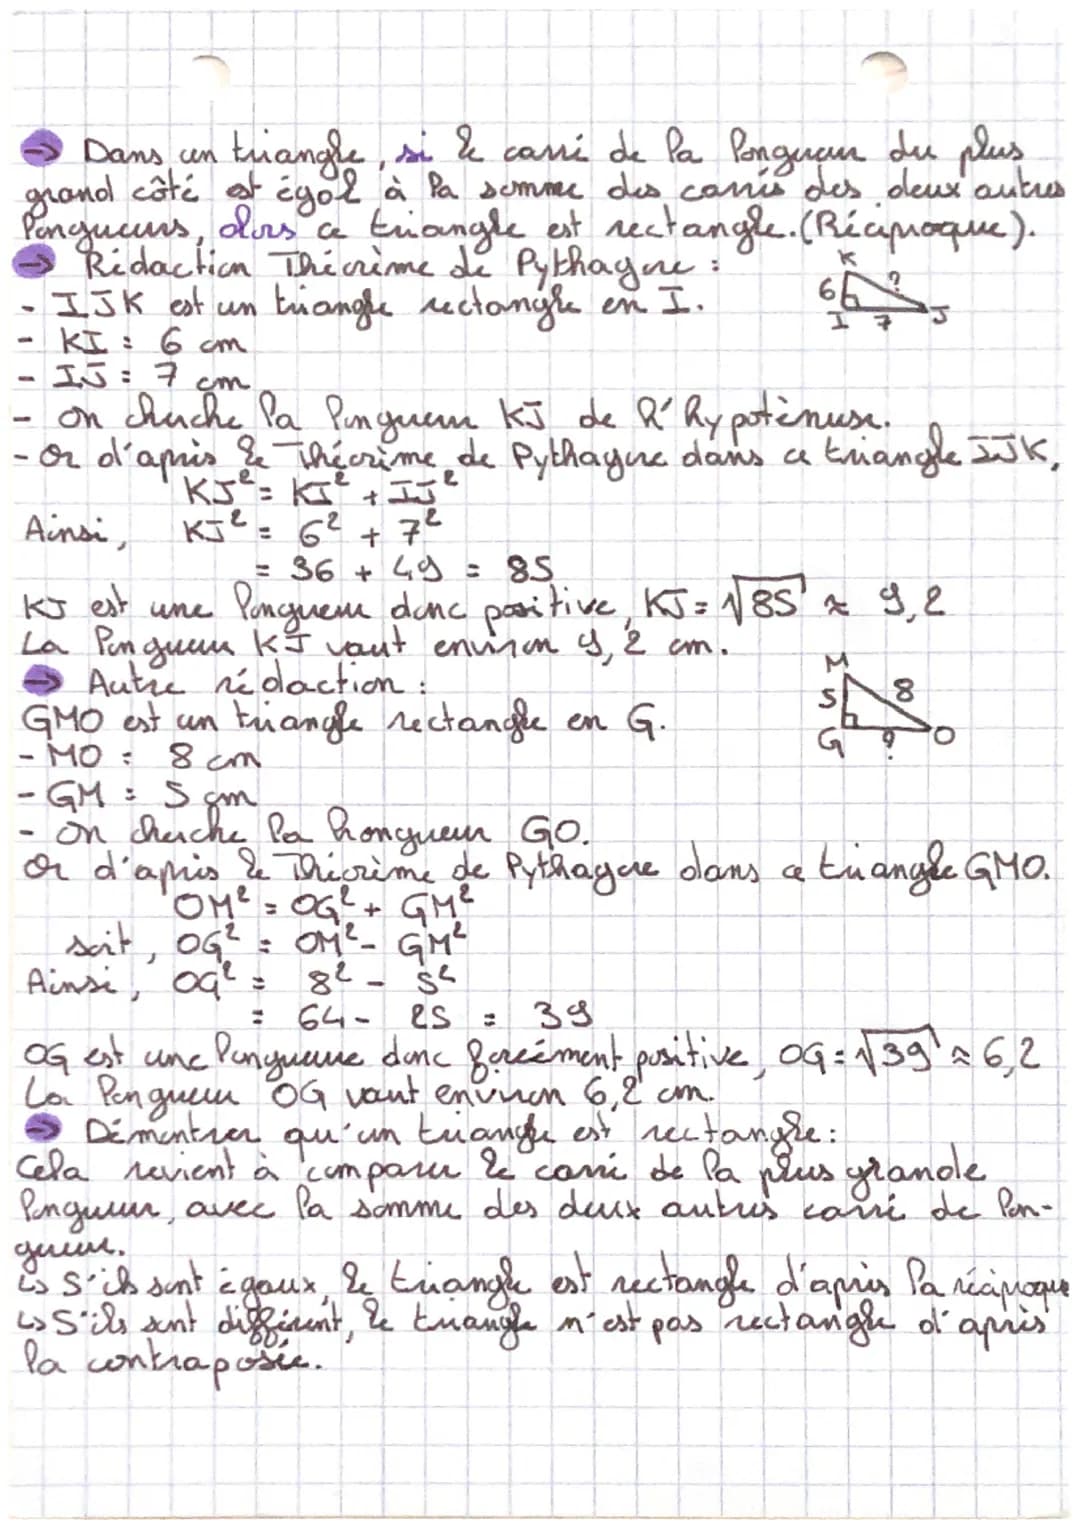 → Dans un triangle, si le carré de la longueur du plus
grand côté est égal à la somme des carrés des deux autres
longueurs, alors ce triangle est rectangle. (Réciproque).
→ Rédaction Théorème de Pythagore :
- IJK est un triangle rectangle en I.
K
6
?
I 7 J
- KI = 6 cm
- IJ = 7 cm
- on cherche la longueur KJ de l'hypoténuse.
- Or d'après le Théorème de Pythagore dans ce triangle IJK,
KJ² = KI² + IJ²
Ainsi, KJ² = 6² + 7²
= 36 + 49 = 85
KJ est une longueur donc positive, KJ = √85 ≈ 9,2
La longueur KJ vaut environ 9,2 cm.
→ Autre rédaction :
GMO est un triangle rectangle en G.
M
5
8
G ? O
- MO = 8 cm
- GM = 5 cm
- on cherche la longueur GO.
Or d'après le Théorème de Pythagore dans ce triangle GMO.
OM² = OG² + GM²
soit, OG² = OM² - GM²
Ainsi, OG² = 8² - 5²
= 64 - 25 = 39
OG est une longueure donc forcément positive, OG = √39 ≈ 6,2
La longueur OG vaut environ 6,2 cm.
→ Démontrer qu'un triangle est rectangle :
Cela revient à comparer le carré de la plus grande
longueur, avec la somme des deux autres carré de lon-
gueur.
↳ S'ils sont égaux, le triangle est rectangle d'après la réciproque
↳ S'ils sont différent, le triangle n'est pas rectangle d'après
la contraposée.